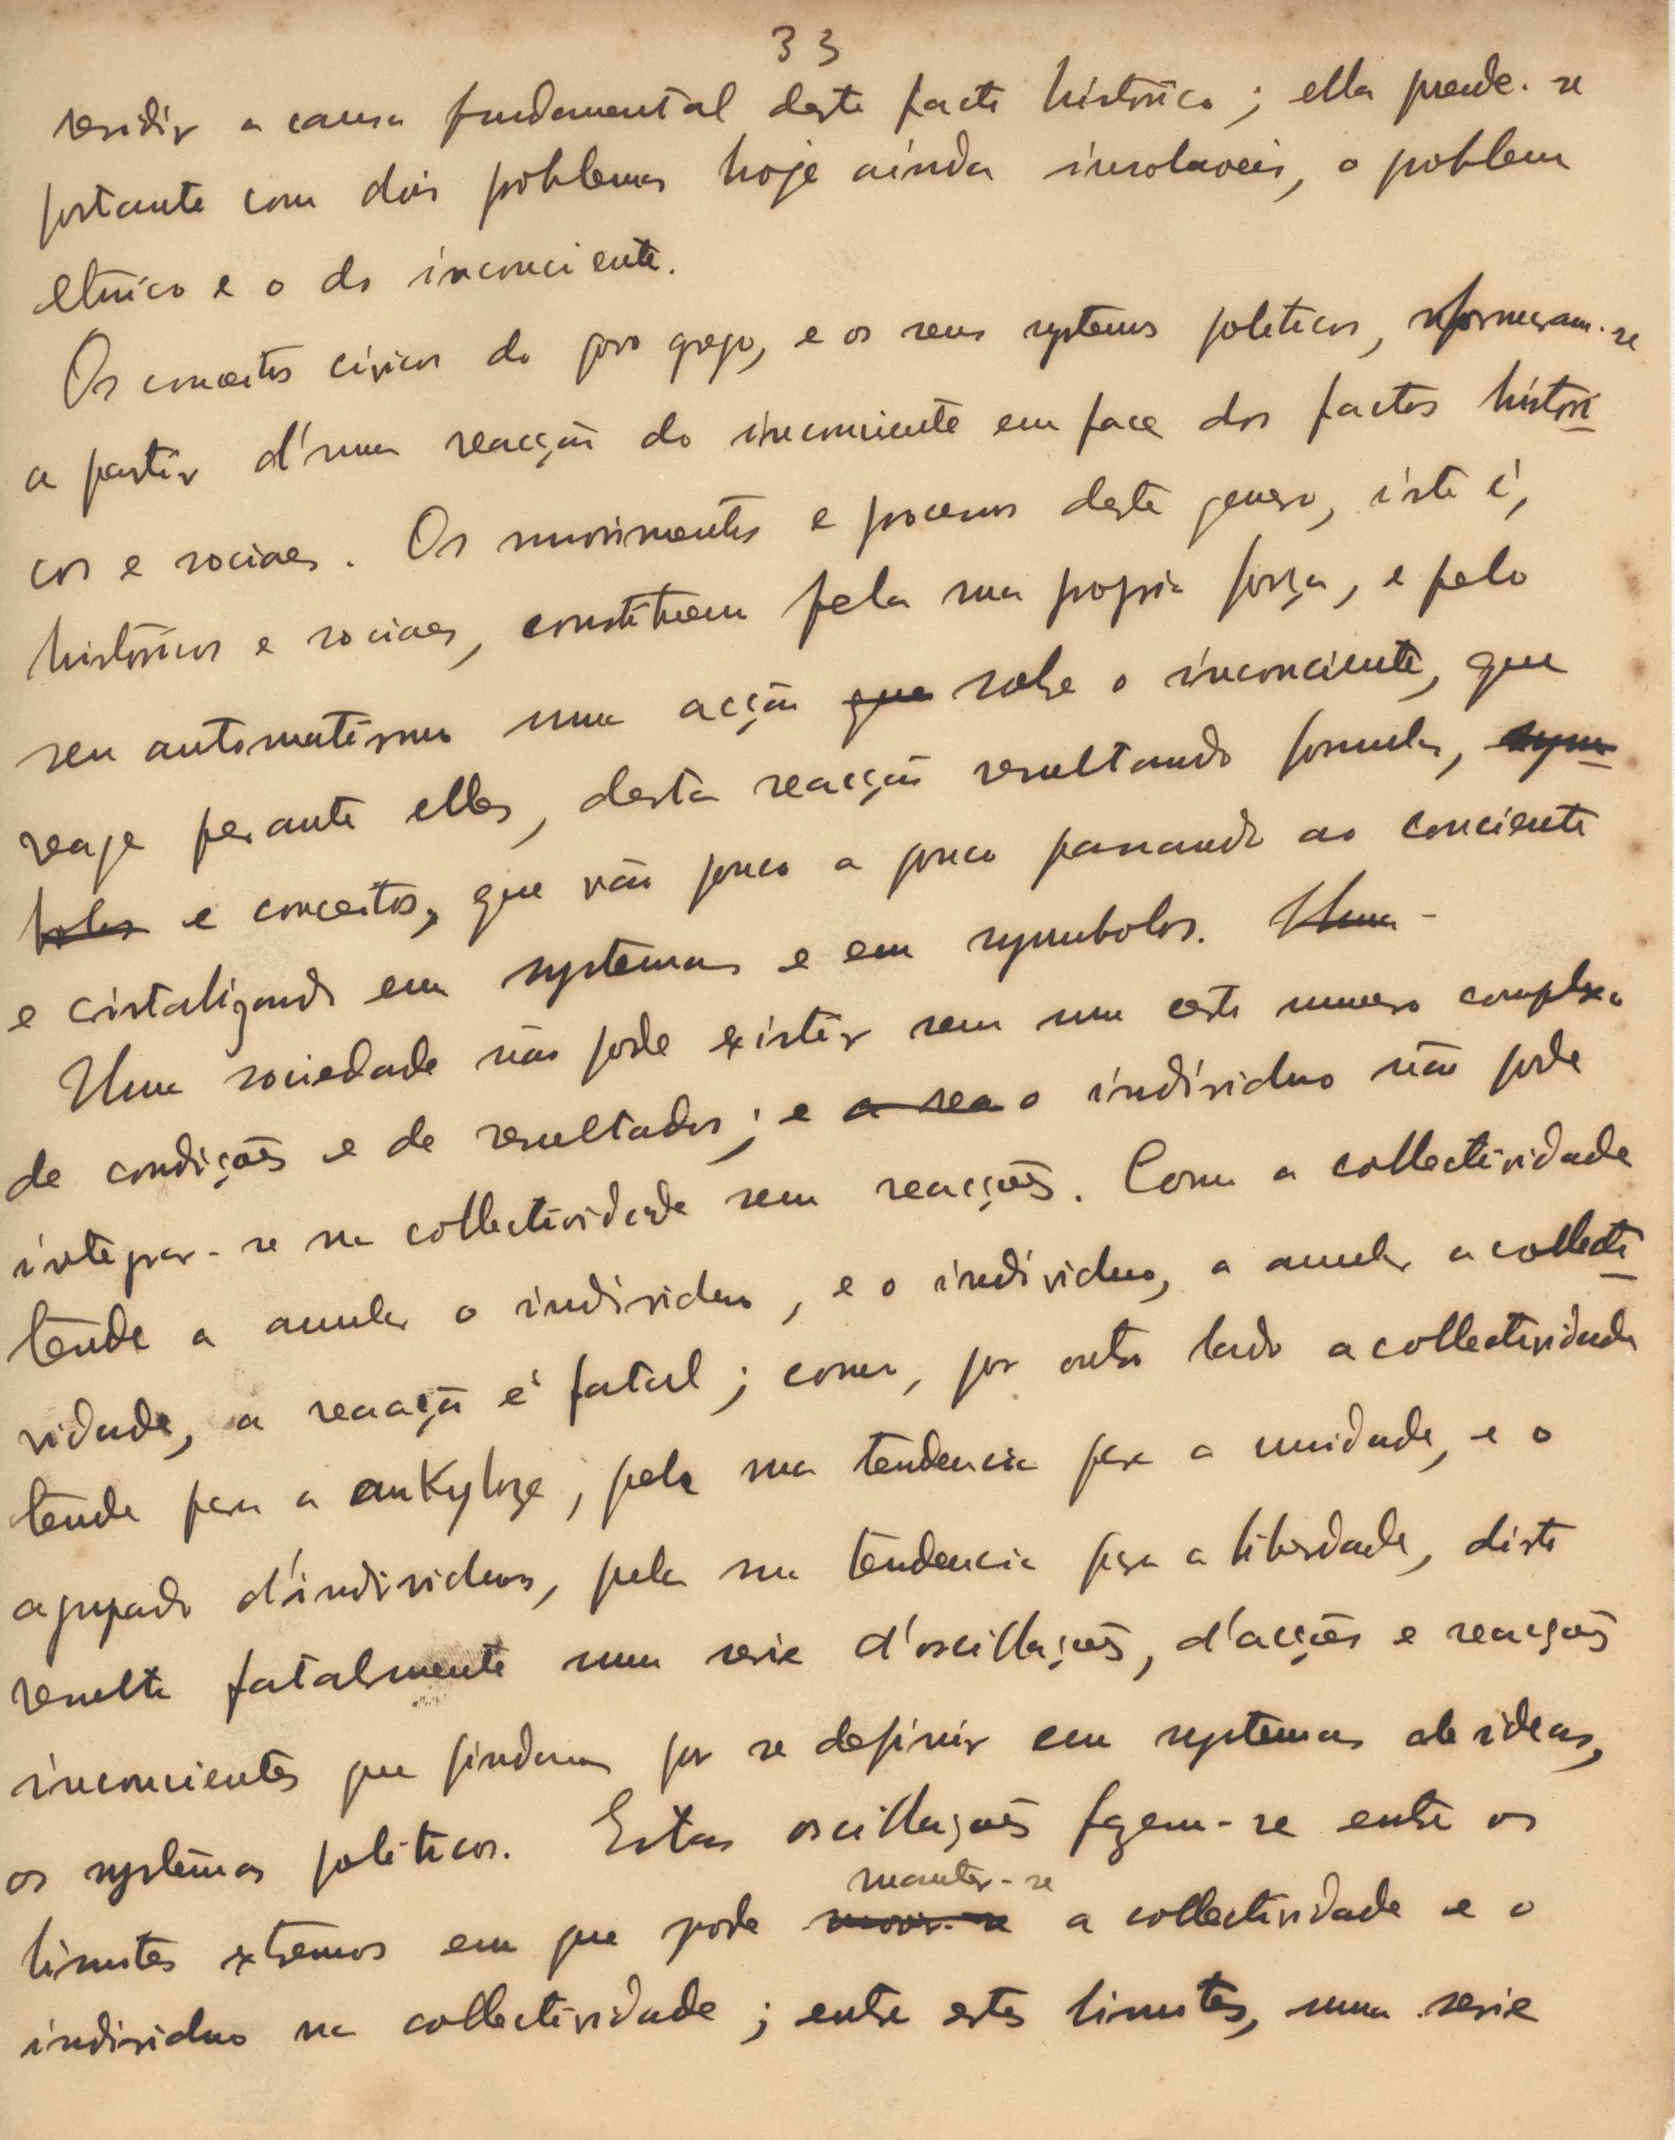 33
residir a causa fundamental deste facto histórico; ella prende-se
portanto com dois problemas hoje ainda insoluveis, o problema
etnico e o do inconciente.
Os conceitos civicos do povo grego, e os seus systemas politicos, formaram-se
a partir d'uma reacção do inconciente em face dos factos histori
cos e sociaes. Os movimentos e processos deste genero, isto é,
históricos e sociaes, constituem pela sua propria força, e pelo
seu automatismo uma acção que sobre o inconciente, que
reage perante elles, desta reacção resultando formulas, sym
bolos e conceitos, que vão pouco a pouco passando ao conciente
e cristalizando em systemas e em symbolos. Uma -
Uma sociedade não pode existir sem um certo numero complexo
de condições e de resultados; e a rea o individuo não pode
integrar-se na collectividade sem reacções. Como a collectividade
tende a anular o individuo, e o individuo, a anular a collecti
vidade, a reacção é fatal; como, por outro lado a collectividade
tende para a ankyloze, pela sua tendencia para a unidade, e o
agrupado d'individuos, pela sua tendencia para a liberdade, disto
resulta fatalmente uma serie d'oscillações, d'acções e reacções
inconcientes que findam por se definir em systemas de ideas,
os systemas politicos. Estas oscillações fazem-se entre os
manter-se
limites extremos em que pode mover-se a collectividade e o
individuo na collectividade; entre estes limites, uma serie